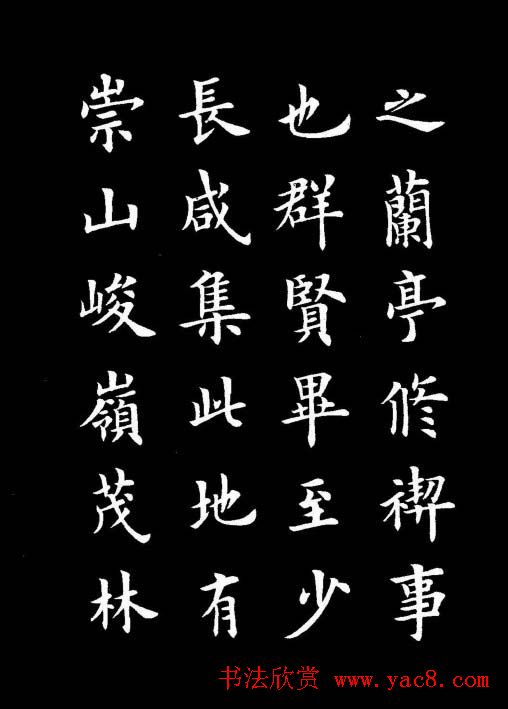 之蘭亭修禊事
也群賢畢至少
長咸集此地有
崇山峻嶺茂林
书法欣赏 www.yac8.com